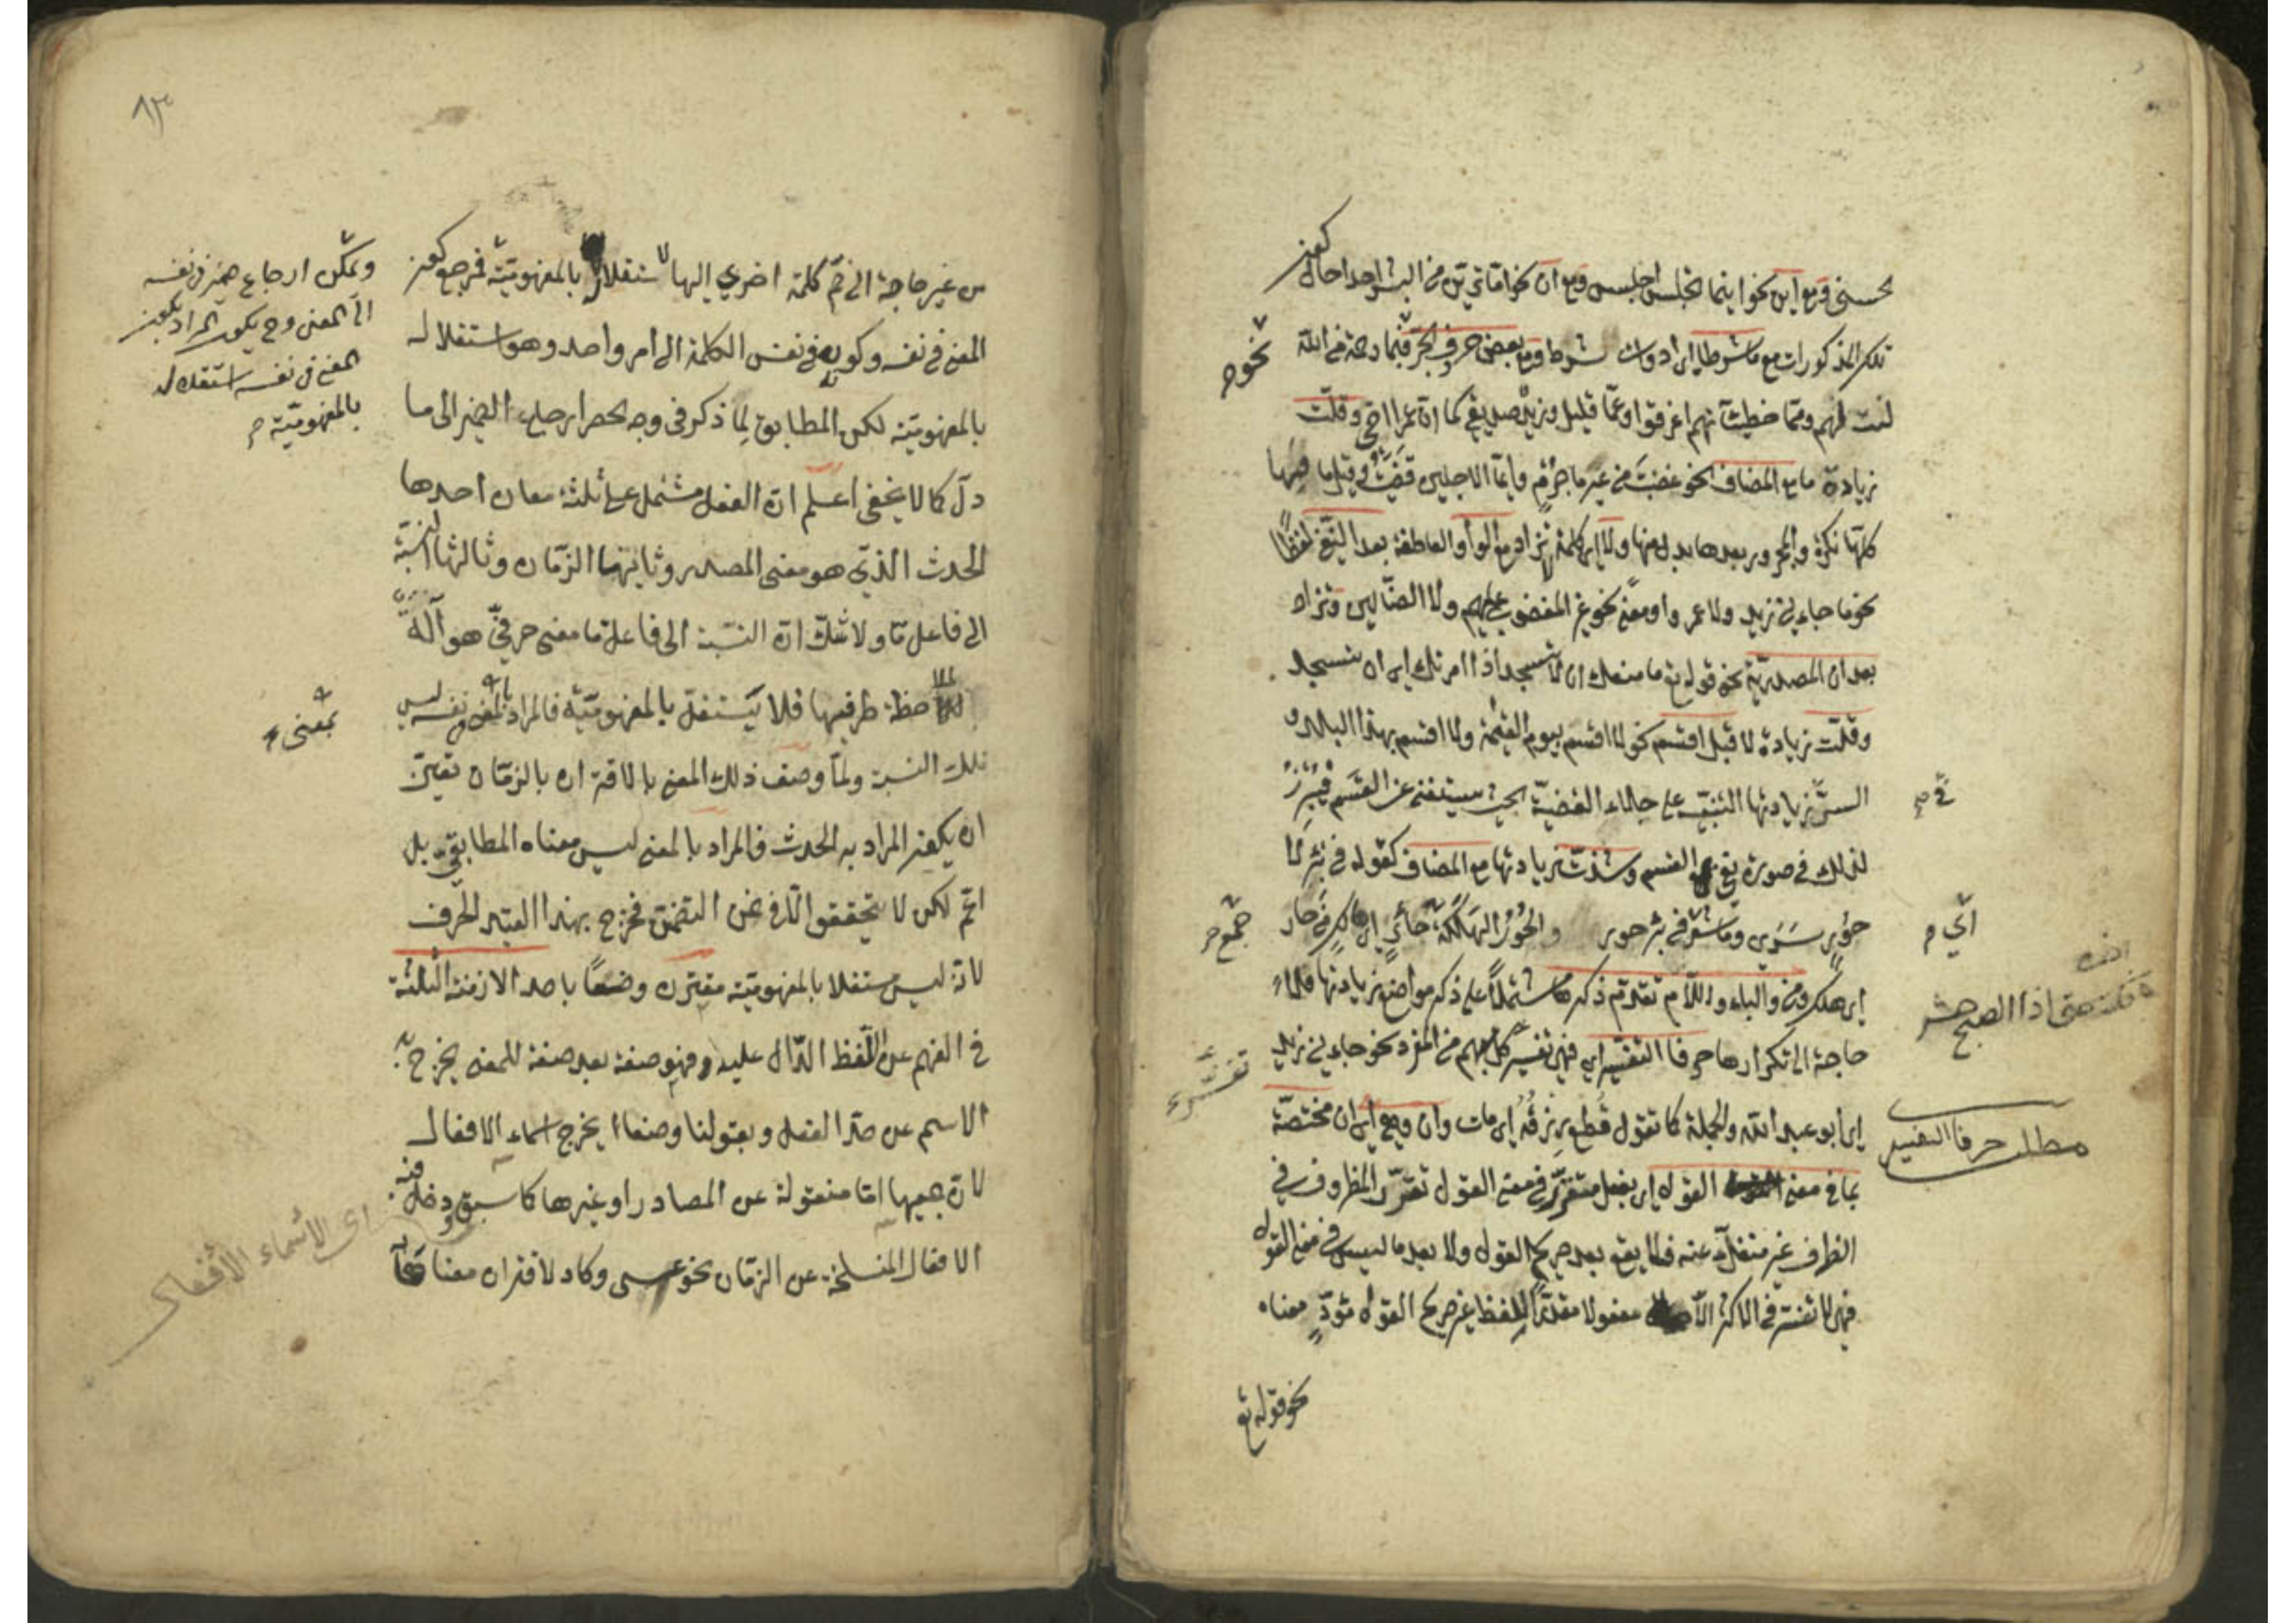 تحسني ومع اين نحو اينما تجلس اجلس ومع ان نحو اما ترين من البشر احدا حال كون
تلك المذكورات مع ما شرطا اي ادوات شرط ومع بعض حروف الجر نحو فبما رحمة من الله
نحو
لنت لهم ومما خطيئآتهم اغرقوا وعما قليل وزيد صديقي كما ان عمرا اخي وقلت
زيادة ما مع المضاف نحو غضبت من غير ما جرم وايما الاجلين قضيت وقيل ما فيها
كلها نكرة والمجرور بعدها بدل منها ولا اي كلمة لا تزاد مع الواو العاطفة بعد النفي لفظا
نحو ما جاءني زيد ولا عمرو او معنى نحو غير المغضوب عليهم ولا الضالين وتزاد
بعد ان المصدرية نحو قوله تع ما منعك ان لا تسجد اذا امرتك اي ان تسجد
وقلت زيادة لا قبل اقسم نحو لا اقسم بيوم القيمة ولا اقسم بهذا البلد و
السر في زيادتها التنبيه على جلاء القضية بحيث يستغنى عن القسم فيبرز
لذلك في صورة نفي القسم وشذت زيادتها مع المضاف كقوله في بئر لا
حور سرى وما شعر في بئر حور والحور الهلكة جمع حائر اي هالك من حار
اي هلك ومن والباء واللام تقدم ذكرها مشتملا على ذكر مواضع زيادتها فلا
حاجة الى تكرارها حرفا التفسير اي فهي تفسير كل مبهم من المفرد نحو جاءني زيد
اي ابو عبد الله والجملة كما تقول قطع رزقه اي مات وان وهي اي ان مختصة
بما في معنى القول اي بفعل متقرر في معنى القول تقرر المظروف في
الظرف غير منفك عنه فلا يقع بعد صريح القول ولا بعد ما ليس في معنى القول
فهي لا تفسر في الاكثر الا مفعولا مقدرا للفظ غير صريح القول مؤد معناه
نحو قوله تع
مطلب حرفا التفسير
اذا الصبح حشر
٨٣
من غير حاجة الى ضم كلمة اخرى اليها لاستقلاله بالمفهومية فمرجع كون
المعنى في نفسه وكونه في نفس الكلمة الى امر واحد وهو استقلاله
بالمفهومية لكن المطابق لما ذكر في وجه الحصر ارجاع الضمير الى ما
دل كما لا يخفى اعلم ان الفعل مشتمل على ثلثة معان احدها
الحدث الذي هو معنى المصدر وثانيها الزمان وثالثها النسبة
الى فاعل ما ولا شك ان النسبة الى فاعل ما معنى حرفي هو آلة
لملاحظة طرفيها فلا يستقل بالمفهومية فالمراد بالمعنى في نفسه ليس
تلك النسبة ولما وصف ذلك المعنى بالاقتران بالزمان تعين
ان يكون المراد به الحدث فالمراد بالمعنى ليس معناه المطابقي بل
اعم لكن لا يتحقق الا في ضمن التضمن فخرج بهذا القيد الحرف
لانه ليس مستقلا بالمفهومية مقترن وضعا باحد الازمنة الثلثة
في الفهم عن اللفظ الدال عليه فهو صفة بعد صفة للمعنى يخرج به
الاسم عن حد الفعل وبقولنا وضعا يخرج اسماء الافعال
لان جميعها اما منقولة عن المصادر او غيرها كما سبق ودخل فيه
الافعال المنسلخة عن الزمان نحو عسى وكاد لاقتران معناها
ويمكن ارجاع ضمير في نفسه
الى المعنى وح يكون المراد بكون
المعنى في نفسه استقلاله
بالمفهومية
بمعنى
اى الاسماء الافعال